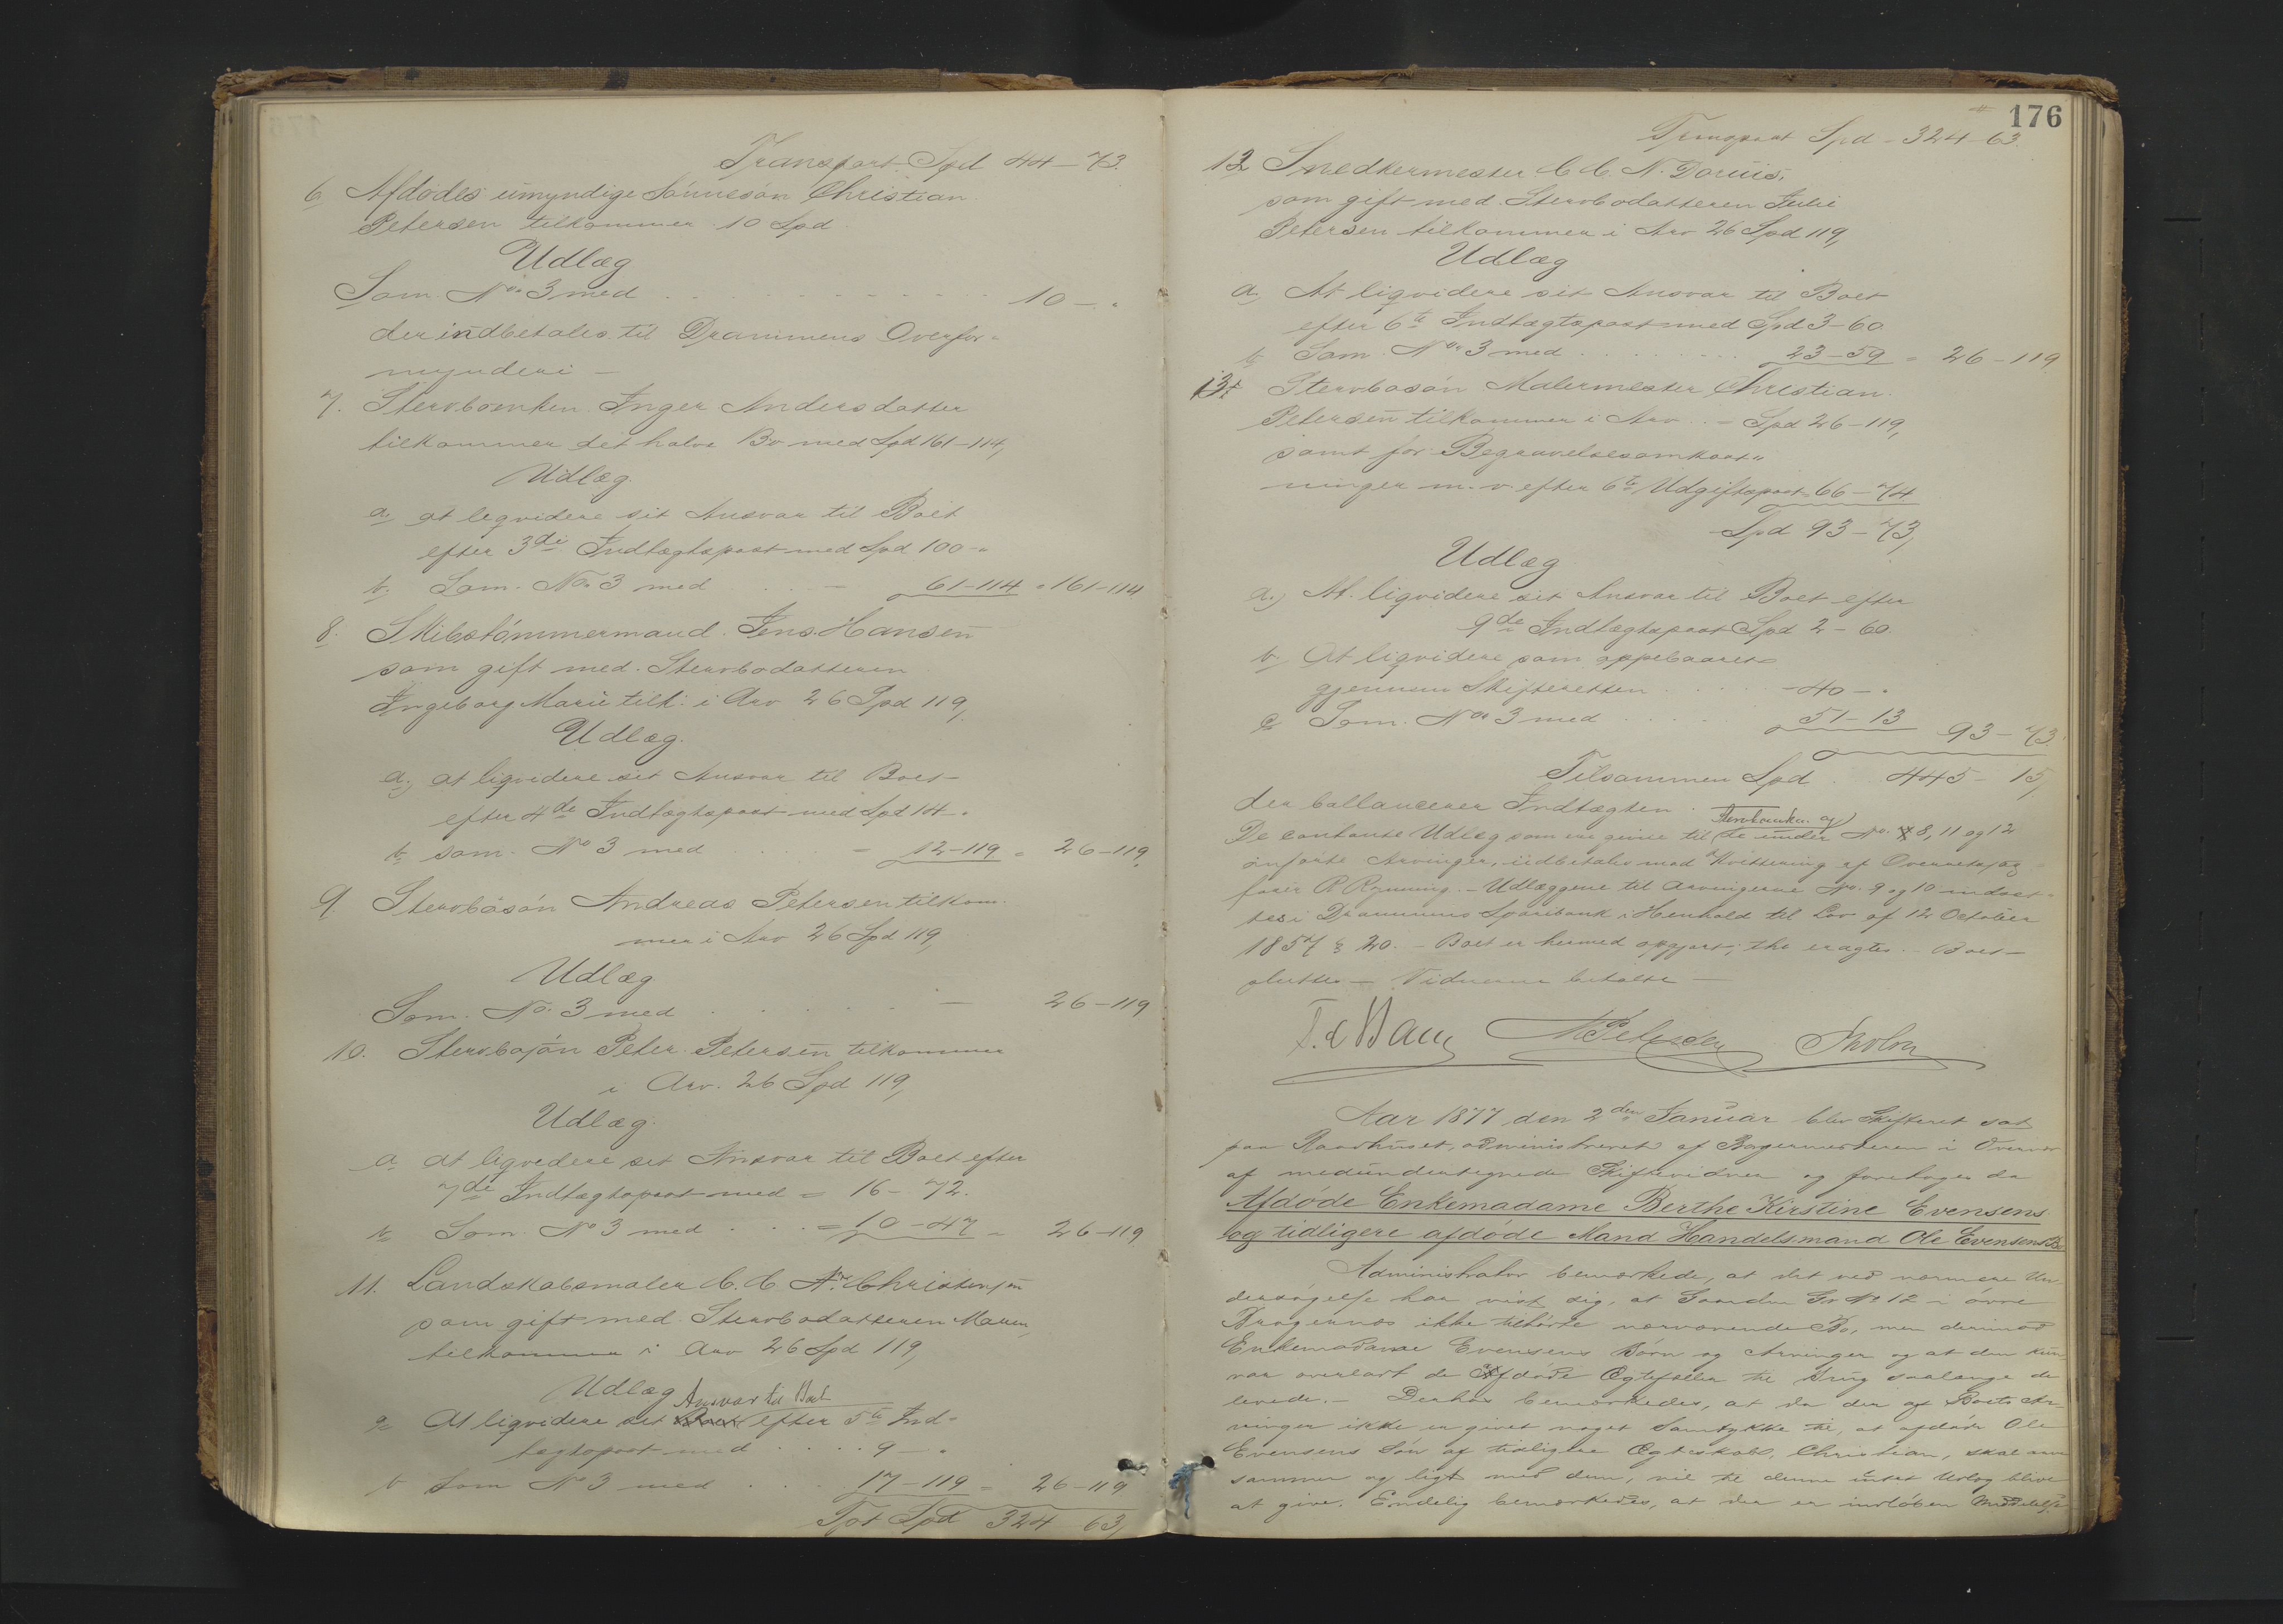 Transport Spd 44-73.
6 Afdødes umyndige Sønnesøn Christian
Petersen tilkommer 10 Spd
Udlæg
Som No 3 med 10 - "
der indbetales til Drammens Overfor-
mynderi -
7. Stervboenken Inger Andersdatter
tilkommer det halve Bo med Spd 161-114,
Udlæg.
a, at liqvidere sit Ansvar til Boet
efter 3die Indtægtspost med Spd 100 - "
b, Som No 3 med 61-114 = 161-114
8. Skibstømmermand Jens Hansen
som gift med Stervbodatteren
Ingeborg Marie tilk: i Arv 26 Spd 119,
Udlæg.
a, at liqvidere sit Ansvar til Boet
efter 4de Indtægtspost med Spd 14 - "
b, som No 3 med = 12-119 = 26-119,
9. Stervbosøn Andreas Petersen tilkom-
mer i Arv 26 Spd 119,
Udlæg
Som No 3 med - 26-119
10. Stervbosøn Peter Petersen tilkommer
i Arv 26 Spd 119,
Udlæg.
a at liqvidere sit Ansvar til Boet efter
7de Indtægtspost med = 16-72.
b Som No 3 med = 10-47 = 26-119
11. Landskabsmaler C. C. Christensen
som gift med Stervbodatteren Maren,
tilkommer i Arv 26 Spd 119,
Udlæg
Ansvar til Boet
a At liqvidere sit efter 5te Ind-
tægtspost med 9 - "
b Som No 3 med 17-119 = 26-119
Tpt Spd 324 63,
176
Transport Spd - 324-63.
12 Snedkermester C. C. N. Doriis,
som gift med Stervbodatteren Julie
Petersen tilkommer i Arv 26 Spd 119,
Udlæg
a, At liqvidere sit Ansvar til Boet
efter 6te Indtægtspost med Spd 3-60
b, Som No 3 med 23-59 = 26-119
13 Stervbosøn Malermester Christian
Petersen tilkommer i Arv - Spd 26-119,
samt for Begravelsesomkost-
ninger m. v. efter 6te Udgiftspost 66-74
Spd 93-73,
Udlæg
a, At liqvidere sit Ansvar til Boet efter
9de Indtægtspost Spd 2-60.
b, At liqvidere som oppebaaret
gjennem Skifteretten - 40 - "
c, Som No 3 med 51-13 93-73.
Tilsammen Spd 445-15,
der ballancerer Indtægten.
Stervboenken og
De contante Udlæg som er givne til de under No. 8, 11 og 12
anførte Arvinger, udbetales mod Kvittering af Overretssag-
fører R Rynning. - Udlæggene til Arvingerne No. 9 og 10 indsæt-
tes i Drammens Sparebank i Henhold til Lov af 12 October
1857 § 20. - Boet er hermed opgjort, thi eragtes. - Boet
sluttes - Vidnerne betalte -
Petersen
Aar 1877 den 2den Januar blev Skifteret sat
paa Raadhuset, administreret af Borgermesteren i Overvær
af medundertegnede Skiftevidner og foretoges da
Afdøde Enkemadame Berthe Kirstine Evensens
og tidligere afdøde Mand Handelsmand Ole Evensens Bo
Administrator bemærkede, at det ved nærmere Un-
dersøgelse har vist sig, at Gaarden Gr No 12 i øvre
Bragernes ikke tilhørte nærværende Bo, men derimod
Enkemadame Evensens Børn og Arvinger og at den kun
var overladt de afdøde Ægtefæller til Brug saalænge de
levede. - Derhos bemærkedes, at da der af Boets Ar-
vinger ikke er givet noget Samtykke til, at afdøde Ole
Evensens Søn af tidligere Ægteskab, Christian, skal arve
sammen og ligt med dem, vil til denne intet Udlæg blive
at give. Endelig bemærkedes, at der er indløben Meddelelse